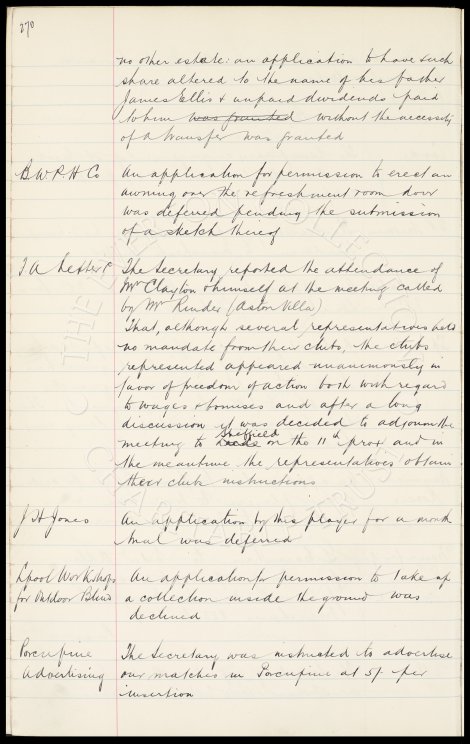 270
no other estate: an application to have such
share altered to the name of his father
James Ellis & unpaid dividends paid
to him was granted without the necessity
of a transfer was granted
B W P. H Co
An application for permission to erect an
awning over the refreshment room door
was deferred pending the submission
of a sketch thereof
The Secretary reported the attendance of
Mr Clayton & himself at the meeting called
by Mr Rinder (Aston Villa)
That, although several representatives held
no mandate from their clubs, the clubs
represented appeared unanimously in
favor of freedom of action both with regard
to wages & bonuses and after a long
discussion it was decided to adjourn the
meeting to Leeds Sheffield on the 11th prox and in
the meantime the representatives obtain
their club instructions
J H Jones
An application by this player for a month
trial was deferred
Lpool Workshops
for Outdoor Blind
An application for permission to take up
a collection inside the ground was
declined
Porcupine
Advertising
The Secretary was instructed to advertise
our matches in Porcupine at 5/- per
insertion
THE
COLLECTION
CHA
TRUST